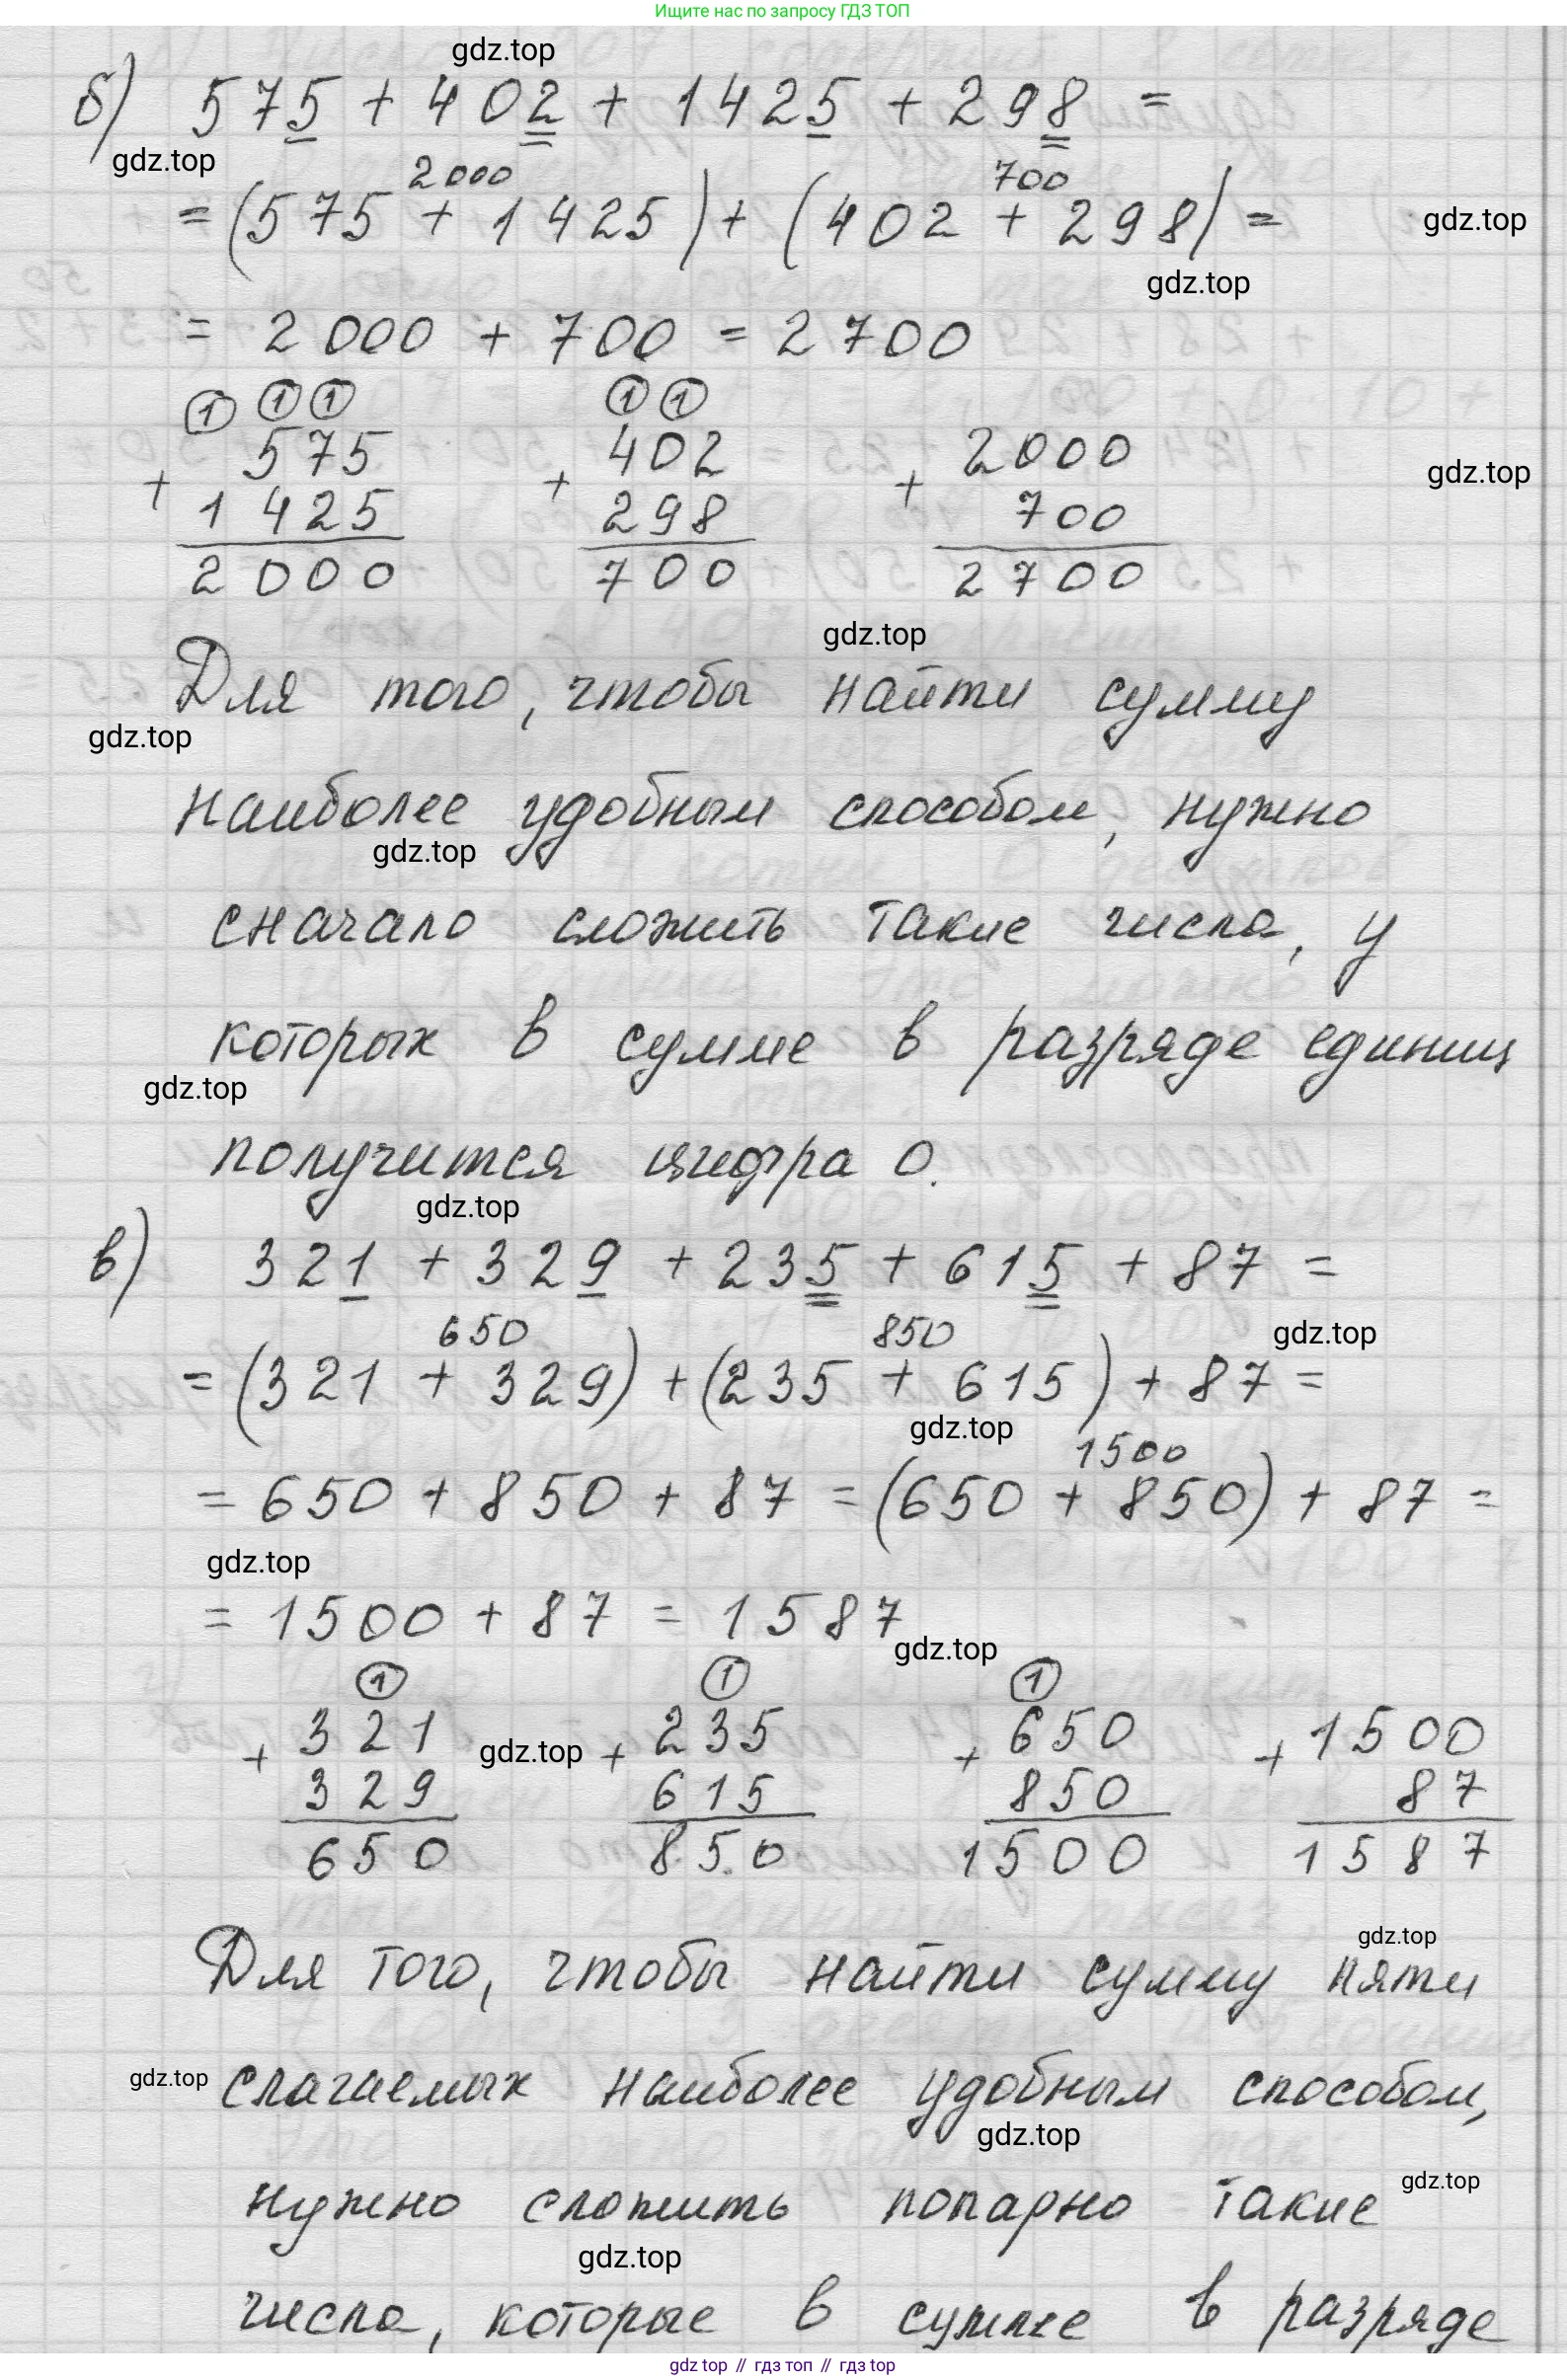 Ищите нас по запросу ГДЗ ТОП
gdz.top
б) 575 + 402 + 1425 + 298 =
gdz.top
2000 700
= (575 + 1425) + (402 + 298) =
gdz.top
gdz.top
= 2000 + 700 = 2700
1 1 1 1 1
575 402 2000
+ + +
gdz.top
1425 298 700
2000 700 2700
gdz.top
Для того, чтобы найти сумму
gdz.top
наиболее удобным способом, нужно
gdz.top
сначало сложить такие числа, у
которых в сумме в разряде единиц
gdz.top
получится цифра 0.
gdz.top
в) 321 + 329 + 235 + 615 + 87 =
650 850
gdz.top
= (321 + 329) + (235 + 615) + 87 =
gdz.top
1500
= 650 + 850 + 87 = (650 + 850) + 87 =
gdz.top
= 1500 + 87 = 1587
gdz.top
1 1 1
321 235 650 1500
+ gdz.top + + +
329 615 850 87
650 850 1500 1587
gdz.top
Для того, чтобы найти сумму пяти
gdz.top
слагаемых наиболее удобным способом,
gdz.top
gdz.top
нужно сложить попарно такие
gdz.top
числа, которые в сумме в разряде
gdz top // гдз топ // гdz top